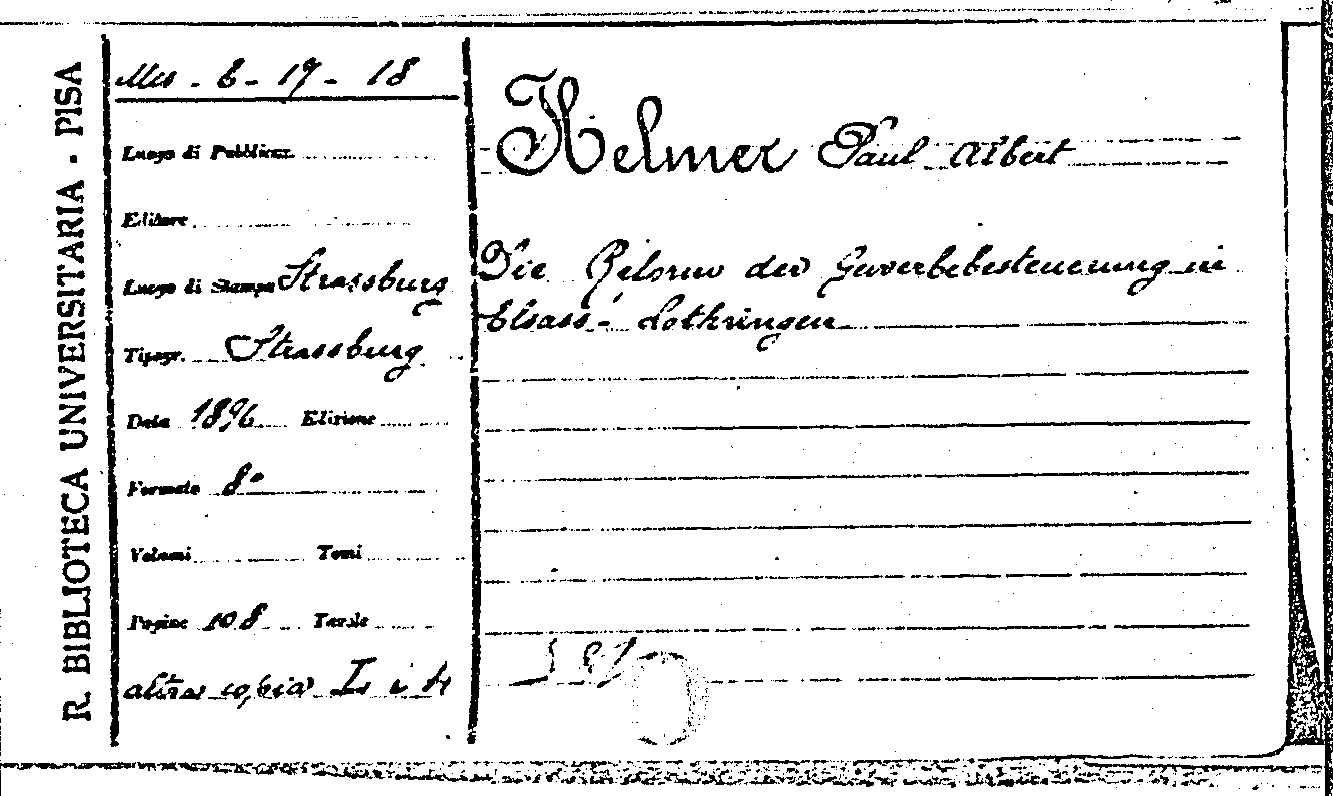 R. BIBLIOTECA UNIVERSITARIA - PISA
Mis - 6 - 17 - 18
Luogo di Pubblicaz.
Editore
Luogo di Stampa Strassburg
Tipogr. Strassburg
Data 1896 Edizione
Formato 8°
Volumi Tomi
Pagine 108 Tavole
altra copia
Helmer Paul Albert
Die Reform der Gewerbebesteuerung in
Elsass-Lothringen